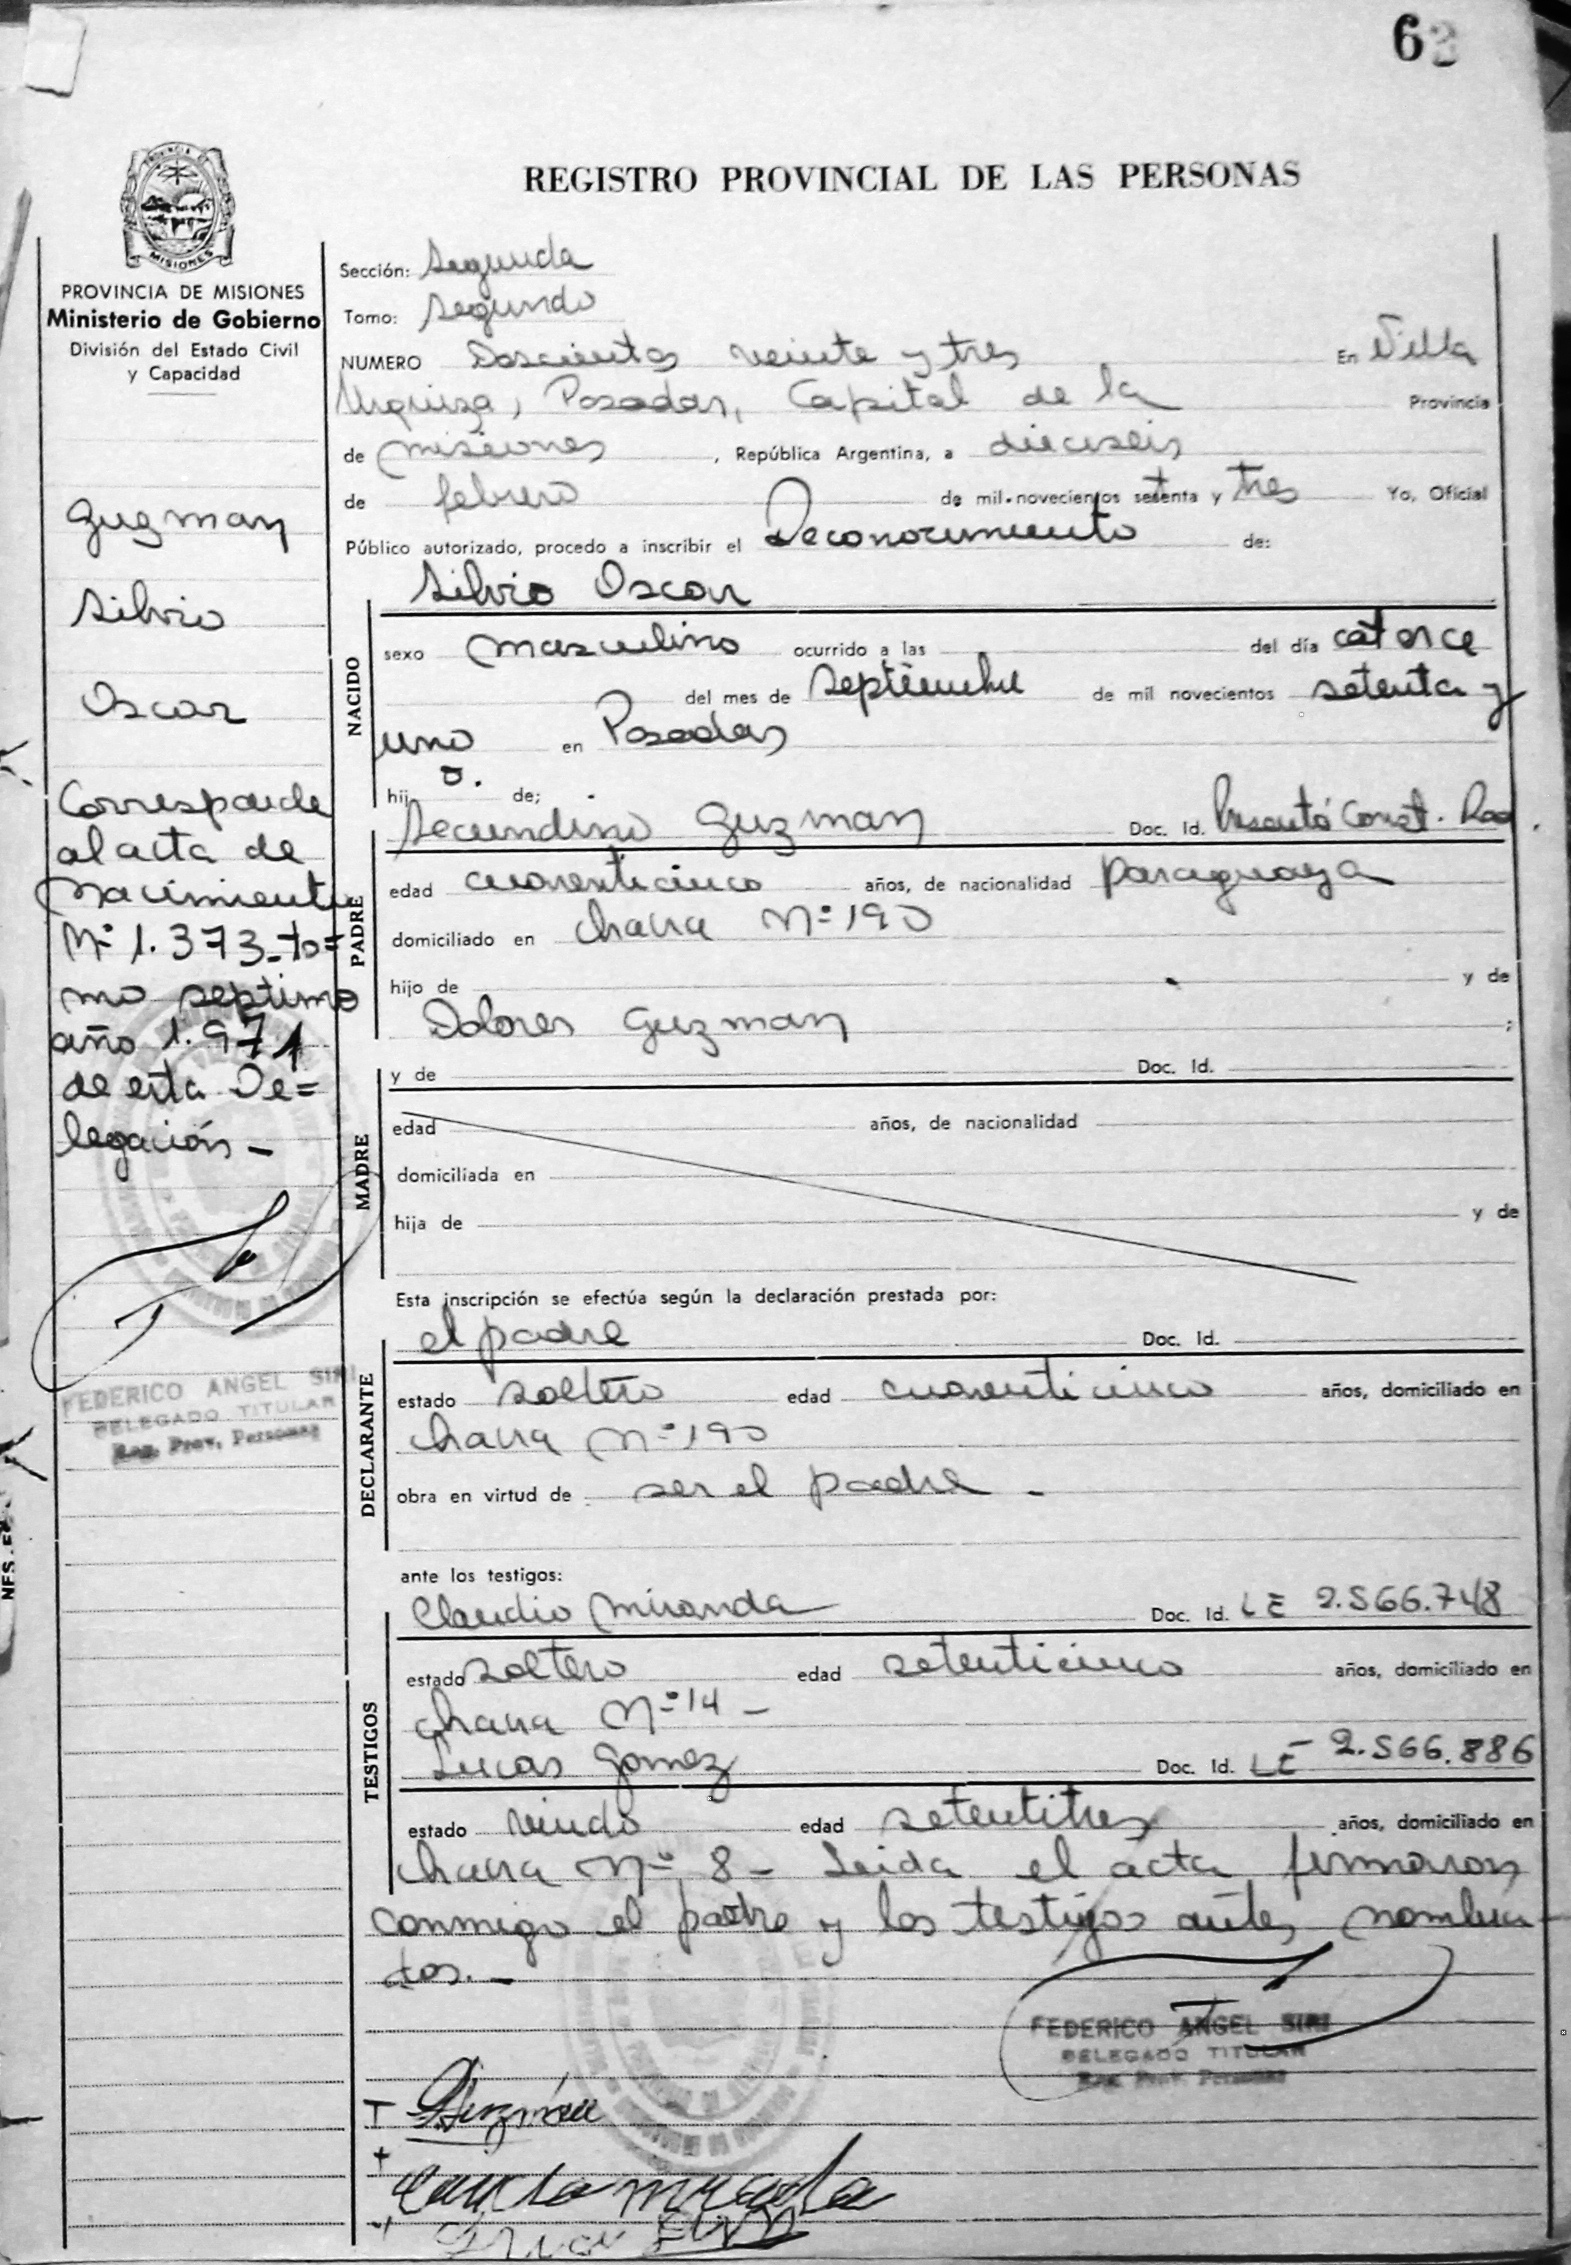 62
REGISTRO PROVINCIAL DE LAS PERSONAS
MISIONES
PROVINCIA DE MISIONES
Ministerio de Gobierno
División del Estado Civil
y Capacidad
Guzman
Silvio
Oscar
Corresponde
al acta de
Nacimiento
Nº 1.373-to=
mo septimo
año 1.971
de esta De=
legación -
FEDERICO ANGEL SIRI
DELEGADO TITULAR
Reg. Prov. Personas
Sección: Segunda
Tomo: Segundo
NUMERO Doscientos veinte y tres En Villa
Urquiza, Posadas, Capital de la Provincia
de Misiones, República Argentina, a dieciseis
de febrero de mil novecientos setenta y tres Yo, Oficial
Público autorizado, procedo a inscribir el Reconocimiento de:
Silvio Oscar
NACIDO
sexo masculino ocurrido a las del día catorce
del mes de septiembre de mil novecientos setenta y
uno en Posadas
hijo. de;
Secundino Guzman Doc. Id. Const.
PADRE
edad cuarenticinco años, de nacionalidad paraguaya
domiciliado en chacra Nº 190
hijo de y de
Dolores Guzman ;
y de Doc. Id.
MADRE
edad años, de nacionalidad
domiciliada en
hija de y de
Esta inscripción se efectúa según la declaración prestada por:
el padre Doc. Id.
DECLARANTE
estado soltero edad cuarenticinco años, domiciliado en
chacra Nº 190
obra en virtud de ser el padre -
ante los testigos:
Claudio Miranda Doc. Id. LE 2.566.748
TESTIGOS
estado soltero edad setenticinco años, domiciliado en
chacra Nº 14 -
Lucas Gomez Doc. Id. LE 2.566.886
estado viudo edad setentitres años, domiciliado en
chacra Nº 8 - Leida el acta firmaron
conmigo el padre y los testigos antes nombra
dos. -
FEDERICO ANGEL SIRI
DELEGADO TITULAR
Reg. Prov. Personas
Guzmán